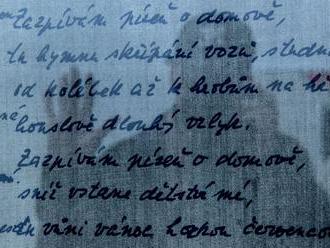 Zazpívám píseň o domově,
tu hymnu skřípání vozů, studn
od kolébek až k hrobům na
houslově dlouhý vzlyk.
Zazpívám píseň o domově,
sníž vstane dětství mé,
vůni vánoc